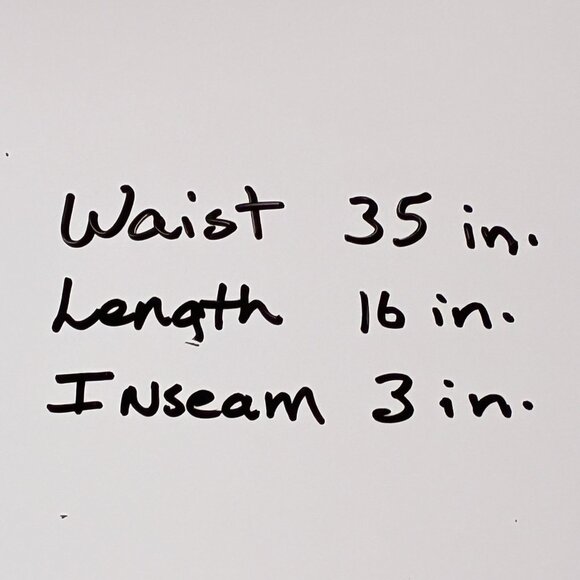 Waist 35 in.
Length 16 in.
Inseam 3 in.